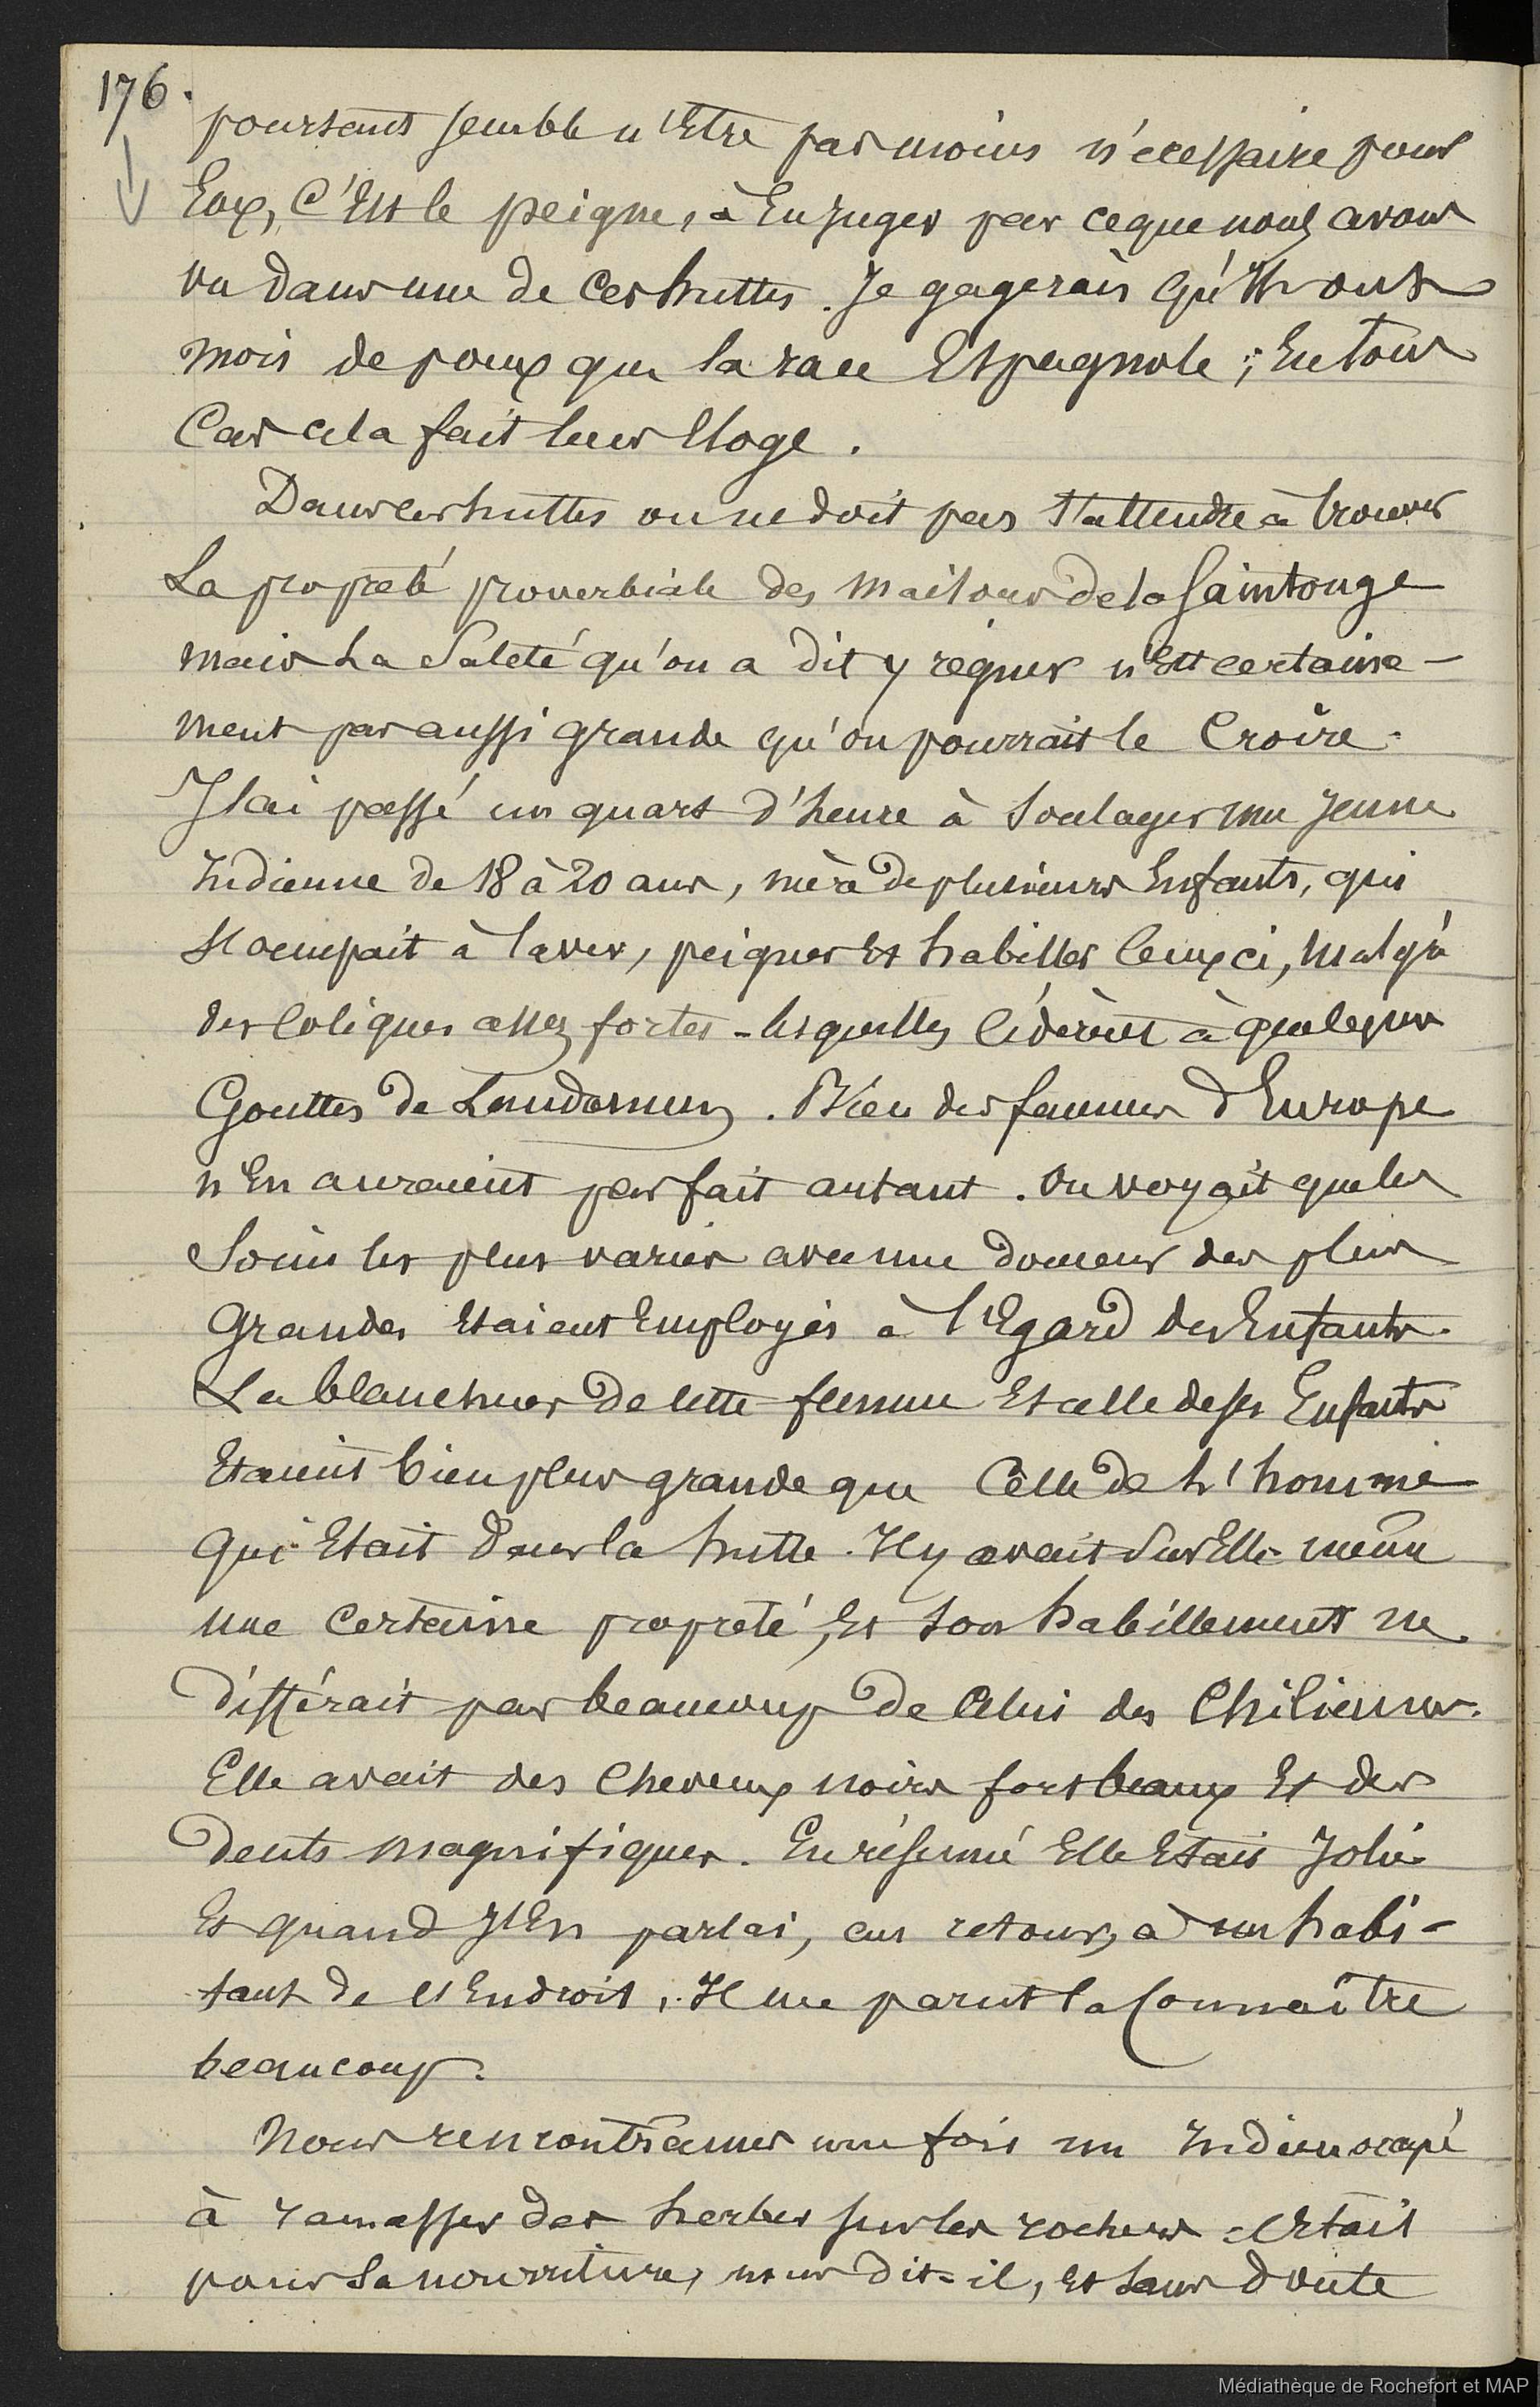 176.
pourtant semble n'Etre pas moins nécessaire pour
Eux, C'Est le peigne, à En juger par ce que nous avons
vu dans une de Ces huttes. Je gagerais qu'ils ont
mois de poux que la race Espagnole ; En tous
Cas cela fait leur Eloge.
Dans ces huttes on ne doit pas s'attendre à trouver
La propreté proverbiale des maisons de la Saintonge
mais La Saleté qu'on a dit y régner n'Est certaine-
ment pas aussi grande qu'on pourrait le Croire.
J'ai passé un quart d'heure à Soulager une jeune
Indienne de 18 à 20 ans, mère de plusieurs Enfants, qui
s'occupait à laver, peigner Et habiller Ceux ci, Malgré
des Coliques assez fortes - lesquelles Cédèrent à quelques
Gouttes de Laudanum. Bien des femmes d'Europe
n'En auraient pas fait autant. On voyait que les
Soins les plus variés avec une douceur des plus
Grandes Etaient Employés à l'Egard des Enfants.
La blancheur de cette femme Et celle de ses Enfants
Etaient bien plus grande que Celle de l'homme
qui Etait dans la hutte. Il y avait sur Elle-même
une Certaine propreté, Et son habillement ne
différait pas beaucoup de Celui des Chiliennes.
Elle avait des Cheveux noirs fort beaux Et des
Dents magnifiques. En résumé Elle Etais Jolie
Et quand j'En parlai, au retour, à un habi-
tant de l'Endroit, Il me parut la Connaître
beaucoup.
Nous rencontrâmes une fois un Indien occupé
à ramasser des herbes sur les rochers - C'était
pour Sa nourriture, nous dit-il, Et Sans doute
Médiathèque de Rochefort et MAP